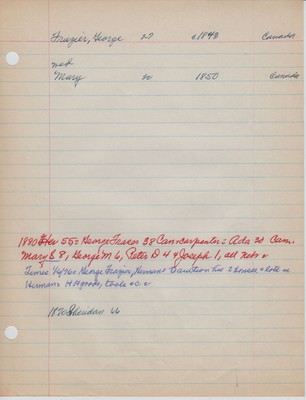 Frazier, George 27 c1843 Canada
and
Mary 20 1850 Canada
1880 55= George Fraser 38 Can carpenter = Ada 30 Can.
Mary E 8, George M 6, Peter D 4 & Joseph 1, all Nebr
Times George Frazier, Hermans Addition has 2 houses & lots
Hermans goods, tools
1870 Sheridan 66